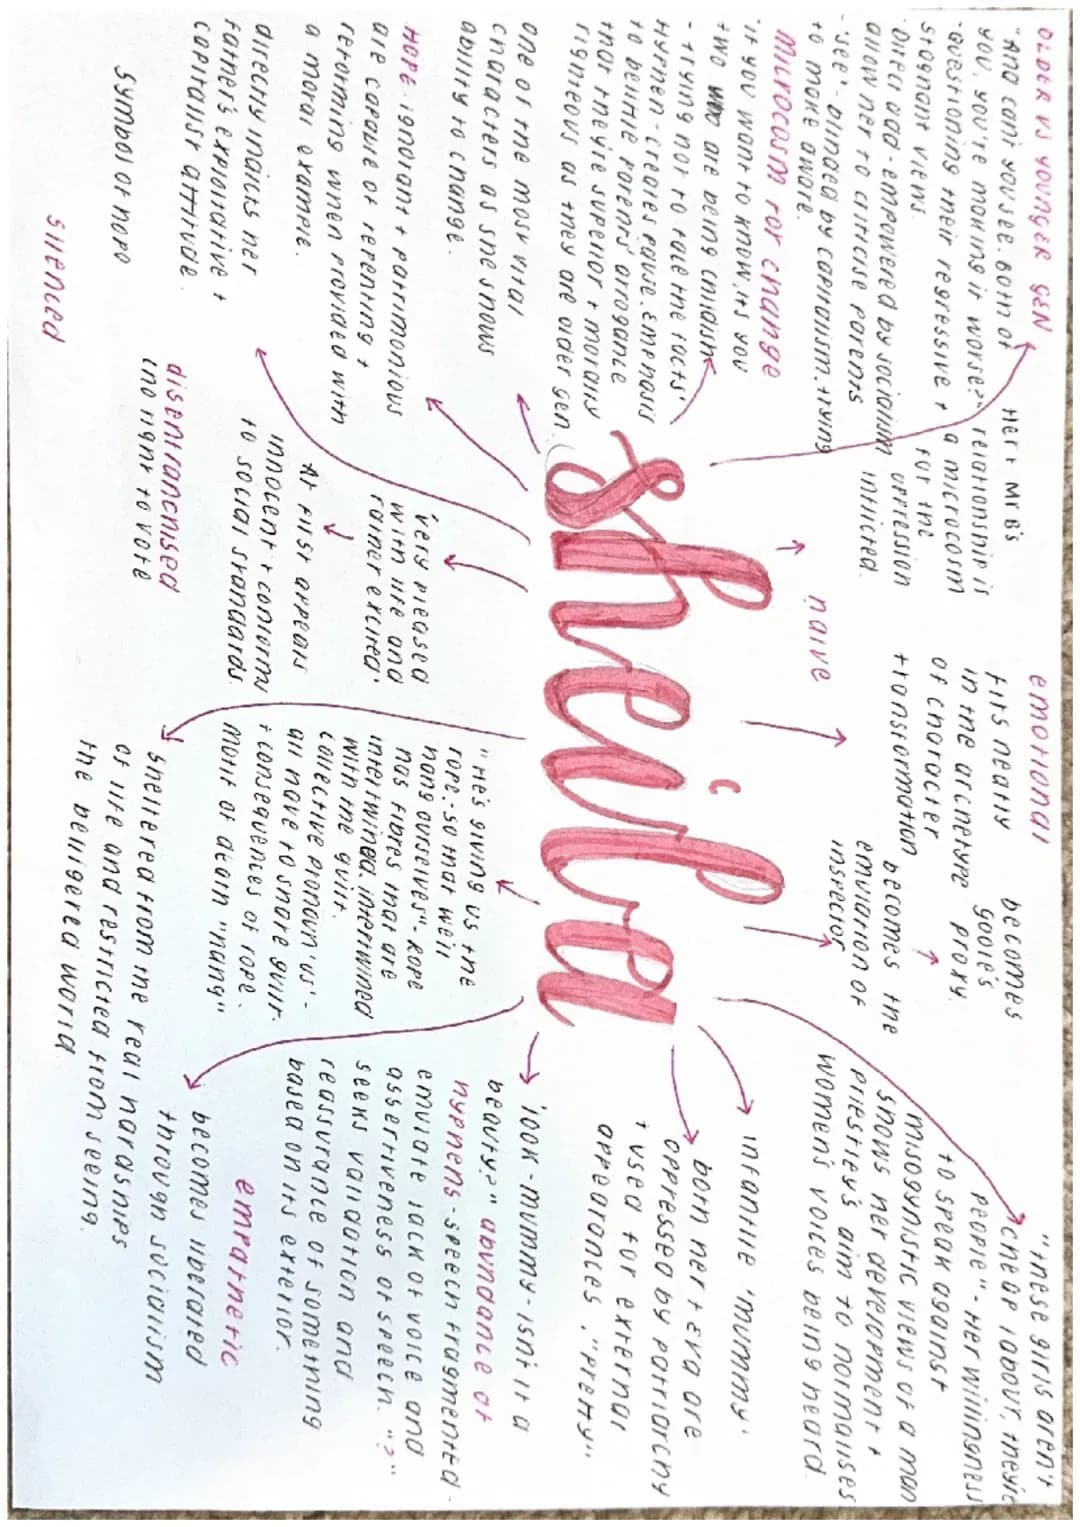 OLDER VS YOUNGER GEN
"And can't you see, both of
you, you're making it worse?"
·questioning their regressive +
stagnant views.
·Direct add - empowered by socialism
allow her to criticise parents
·'see' - blinded by capitalism. trying
to more aware.
Her + Mr B's
relationship is
a microcosm
for the
oppression
inflicted.
microcosm for change
'if you want to know, it's you
two who are being childish
- trying not to face the facts'
Hyphen - creates pause. Emphasis
to belittle parents' arrogance
that they're superior + morally
righteous as they are older gen.
one of the most vital
characters as she shows
ability to change.
HOPE. ignorant + patrimonious
are capable of repenting +
reforming when provided with
a moral example.
directly indicts her
father's exploitative +
capitalist attitude.
symbol of hope
silenced
disenfranchised
(no right to vote
'very pleased
with life and
rather excited'
At first appears
innocent + conforms
to social standards.
naive
sheila
emotional
fits neatly
in the archetype
of character
transformation
becomes
goole's
proxy.
becomes the
emulation of
inspector
"these girls aren't
cheap labour, they're
people" - Her willingness
to speak against
misogynistic views of a man
shows her development +
Priestley's aim to normalises
women's voices being heard.
infantile 'mummy'
born her + Eva are
oppressed by patriarchy
+ used for external
appearances. "pretty"
'look - mummy - isn't it a
beauty?" abundance of
hyphens - speech fragmented -
emulate lack of voice and
assertiveness of speech. "?"
seeks validation and
reassurance of something
based on its exterior.
"He's giving us the
rope - so that we'll
hang ourselves" - Rope
has fibres that are
intertwined, intertwined
with the guilt.
collective pronoun 'us' -
all have to share guilt
+ consequences of rope.
motif of death "hang"
sheltered from the real harashies
of life and restricted from seeing
the belligered world.
empathetic
becomes liberated
through socialism